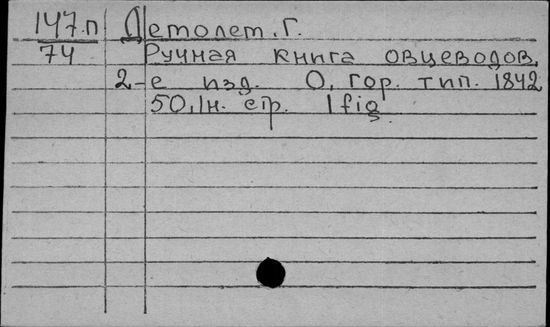 147.п Детолет. Г.
74 Ручная книга овцеводов.
2-е изд. О, гор. тип. 1842
50,1н. стр. 1 fig.